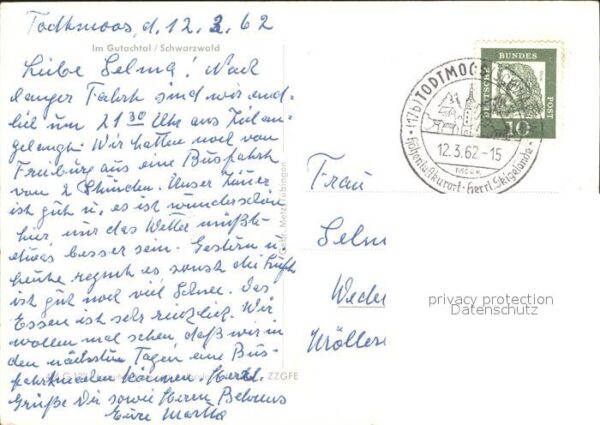 Todtmoos, d. 12. 3. 62
Im Gutachtal / Schwarzwald
Liebe Selma! Nach
langer Fahrt sind wir end-
lich um 21 30 Uhr ans Ziel an-
gelangt. Wir hatten noch von
Freiburg aus eine Busfahrt
von 2 Stunden. Unser Zimmer
ist gut u. es ist wunderschön
hier, nur das Wetter müßte
etwas besser sein. Gestern u.
heute regnet es sonst die Luft
ist gut noch viel Schnee. Das
Essen ist sehr reichlig. Wir
wollen mal sehen, daß wir in
den nächsten Tagen eine Bus-
fahrt machen können. Herzl.
Grüße Dir sowie Herrn Behrens
Eure Martha
ZZGFE
Metz, Tübingen
(17b) TODTMOOS
12.3.62-15
Höhenluftkurort · Herrl. Skigelände
DEUTSCHE
BUNDES
POST
10
Frau
Selm
Wede
Kröllers
privacy protection
Datenschutz